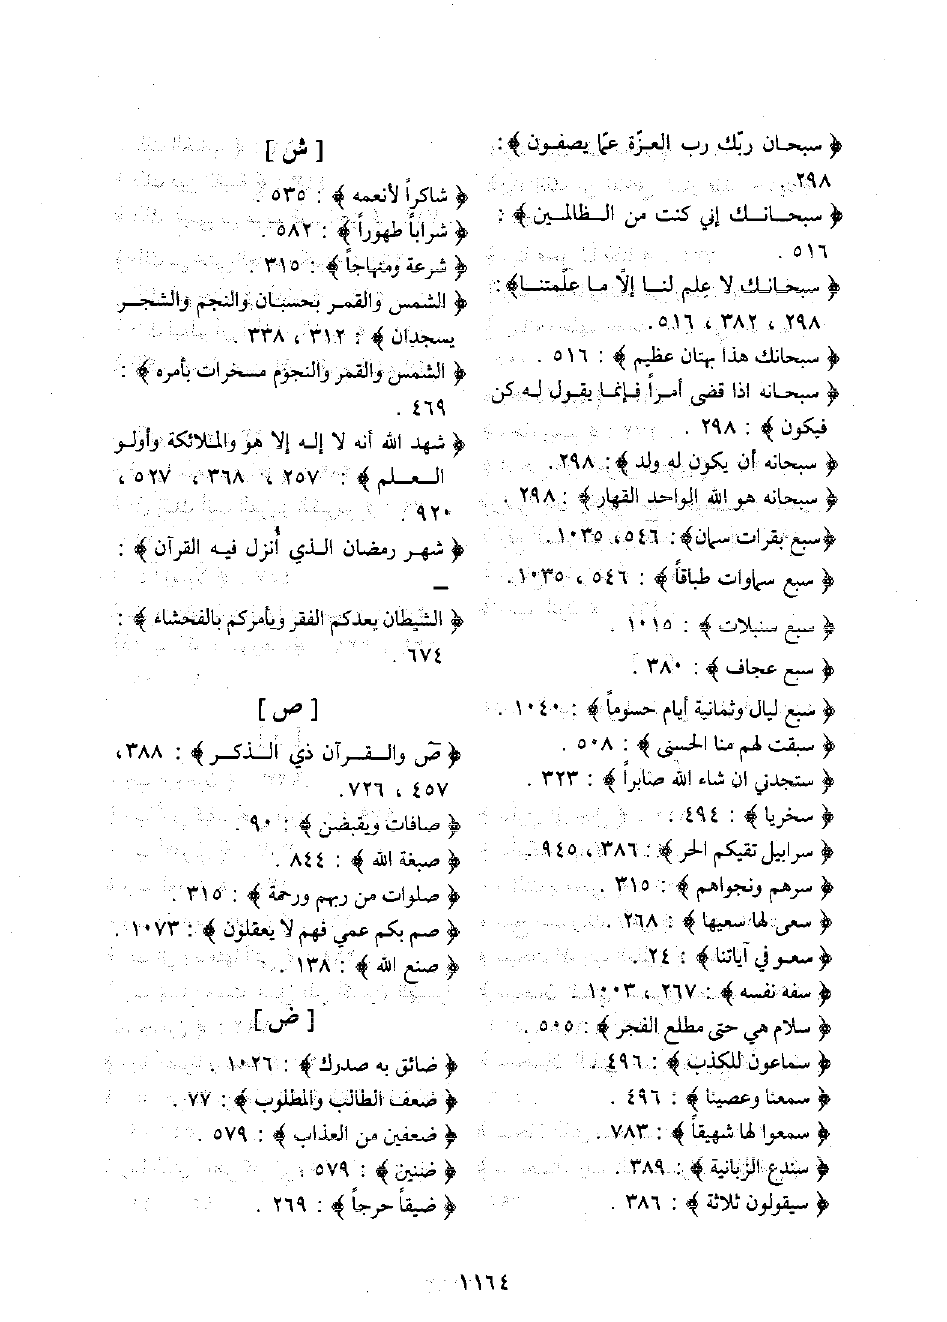 ﴿ سبحان ربّك رب العزّة عمّا يصفون ﴾ :
٢٩٨
﴿ سبحانك إني كنت من الظالمين ﴾ :
٥١٦ .
﴿ سبحانك لا علم لنا إلّا ما علّمتنا ﴾ :
٢٩٨ ، ٣٨٢ ، ٥١٦ .
﴿ سبحانك هذا بهتان عظيم ﴾ : ٥١٦ .
﴿ سبحانه اذا قضى أمراً فإنما يقول له كن
فيكون ﴾ : ٢٩٨ .
﴿ سبحانه أن يكون له ولد ﴾ : ٢٩٨ .
﴿ سبحانه هو الله الواحد القهار ﴾ : ٢٩٨ .
﴿ سبع بقرات سمان ﴾ : ٥٤٦ ، ١٠٣٥ .
﴿ سبع سماوات طباقاً ﴾ : ٥٤٦ ، ١٠٣٥ .
﴿ سبع سنبلات ﴾ : ١٠١٥ .
﴿ سبع عجاف ﴾ : ٣٨٠ .
﴿ سبع ليال وثمانية أيام حسوماً ﴾ : ١٠٤٠ .
﴿ سبقت لهم منا الحسنى ﴾ : ٥٠٨ .
﴿ ستجدني ان شاء الله صابراً ﴾ : ٣٢٣ .
﴿ سخريا ﴾ : ٤٩٤ .
﴿ سرابيل تقيكم الحر ﴾ : ٣٨٦ ، ٩٤٥ .
﴿ سرهم ونجواهم ﴾ : ٣١٥ .
﴿ سعى لها سعيها ﴾ : ٢٦٨ .
﴿ سعو في آياتنا ﴾ : ٢٤ .
﴿ سفه نفسه ﴾ : ٢٦٧ ، ١٠٠٣ .
﴿ سلام هي حتى مطلع الفجر ﴾ : ٥٠٥ .
﴿ سماعون للكذب ﴾ : ٤٩٦ .
﴿ سمعنا وعصينا ﴾ : ٤٩٦ .
﴿ سمعوا لها شهيقاً ﴾ : ٧٨٣ .
﴿ سندع الزبانية ﴾ : ٣٨٩ .
﴿ سيقولون ثلاثة ﴾ : ٣٨٦ .
[ ش ]
﴿ شاكراً لأنعمه ﴾ : ٥٣٥ .
﴿ شراباً طهوراً ﴾ : ٥٨٢ .
﴿ شرعة ومنهاجاً ﴾ : ٣١٥ .
﴿ الشمس والقمر بحسبان والنجم والشجر
يسجدان ﴾ : ٣١٢ ، ٣٣٨ .
﴿ الشمس والقمر والنجوم مسخرات بأمره ﴾ :
٤٦٩ .
﴿ شهد الله أنه لا إله إلا هو والملائكة وأولو
العلم ﴾ : ٢٥٧ ، ٣٦٨ ، ٥٢٧ ،
٩٢٠ .
﴿ شهر رمضان الذي أُنزل فيه القرآن ﴾ :
—
﴿ الشيطان يعدكم الفقر ويأمركم بالفحشاء ﴾ :
٦٧٤ .
[ ص ]
﴿ صۤ والقرآن ذي الذكر ﴾ : ٣٨٨ ،
٤٥٧ ، ٧٢٦ .
﴿ صافات ويقبضن ﴾ : ٩٠ .
﴿ صبغة الله ﴾ : ٨٤٤ .
﴿ صلوات من ربهم ورحمة ﴾ : ٣١٥ .
﴿ صم بكم عمي فهم لا يعقلون ﴾ : ١٠٧٣ .
﴿ صنع الله ﴾ : ١٣٨ .
[ ض ]
﴿ ضائق به صدرك ﴾ : ١٠٢٦ .
﴿ ضعف الطالب والمطلوب ﴾ : ٧٧ .
﴿ ضعفين من العذاب ﴾ : ٥٧٩ .
﴿ ضنين ﴾ : ٥٧٩ .
﴿ ضيقاً حرجاً ﴾ : ٢٦٩ .
١١٦٤